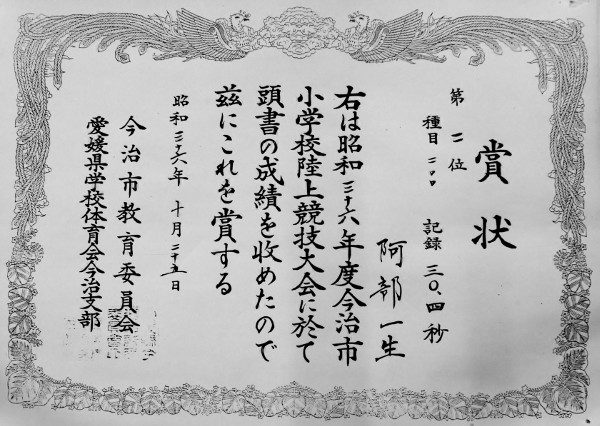 賞状
第二位
種目 二〇〇 記録 三〇.四秒
阿部一生
右は昭和三十六年度今治市
小学校陸上競技大会に於て
頭書の成績を収めたので
茲にこれを賞する
昭和三十六年 十月二十五日
今治市教育委員会
愛媛県学校体育会今治支部